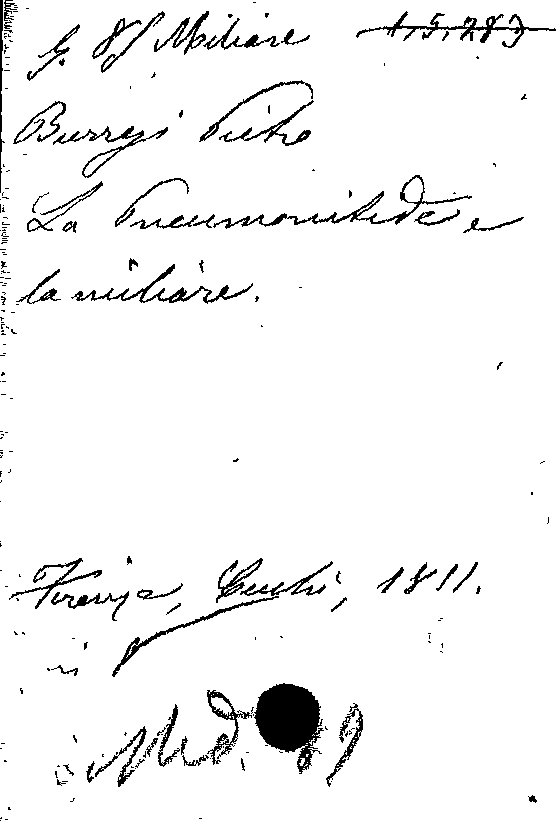 G. 8/ Miliare 1,5,283
Burresi Pietro
La Pneumonitide e
la miliare.
Firenze, Cecchi, 1811.
Med. 89